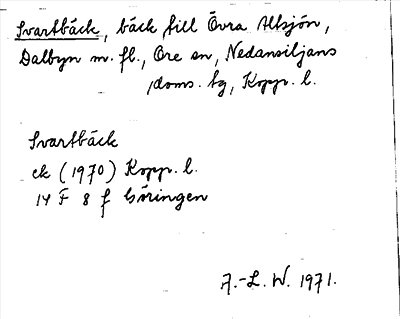 Svartbäck, bäck till Övra Altsjön,
Dalbyn m. fl., Ore sn, Nedansiljans
doms. tg, Kopp. l.
Svartbäck
ek (1970) Kopp. l.
14 F 8 f Göringen
A.-L. W. 1971.